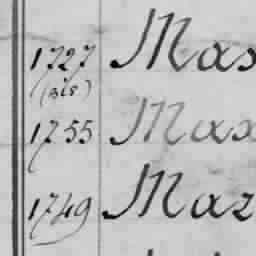 1727 Mas
(bis)
1755 Max
1749 Maz